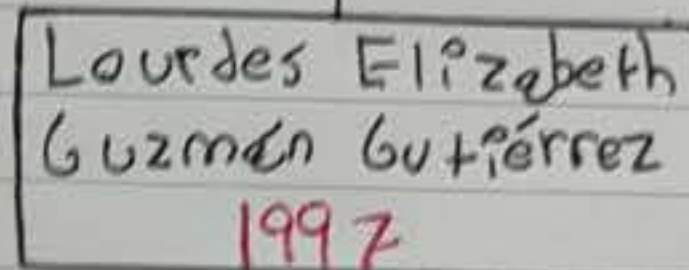 Lourdes Elizabeth
Guzmán Gutiérrez
1997